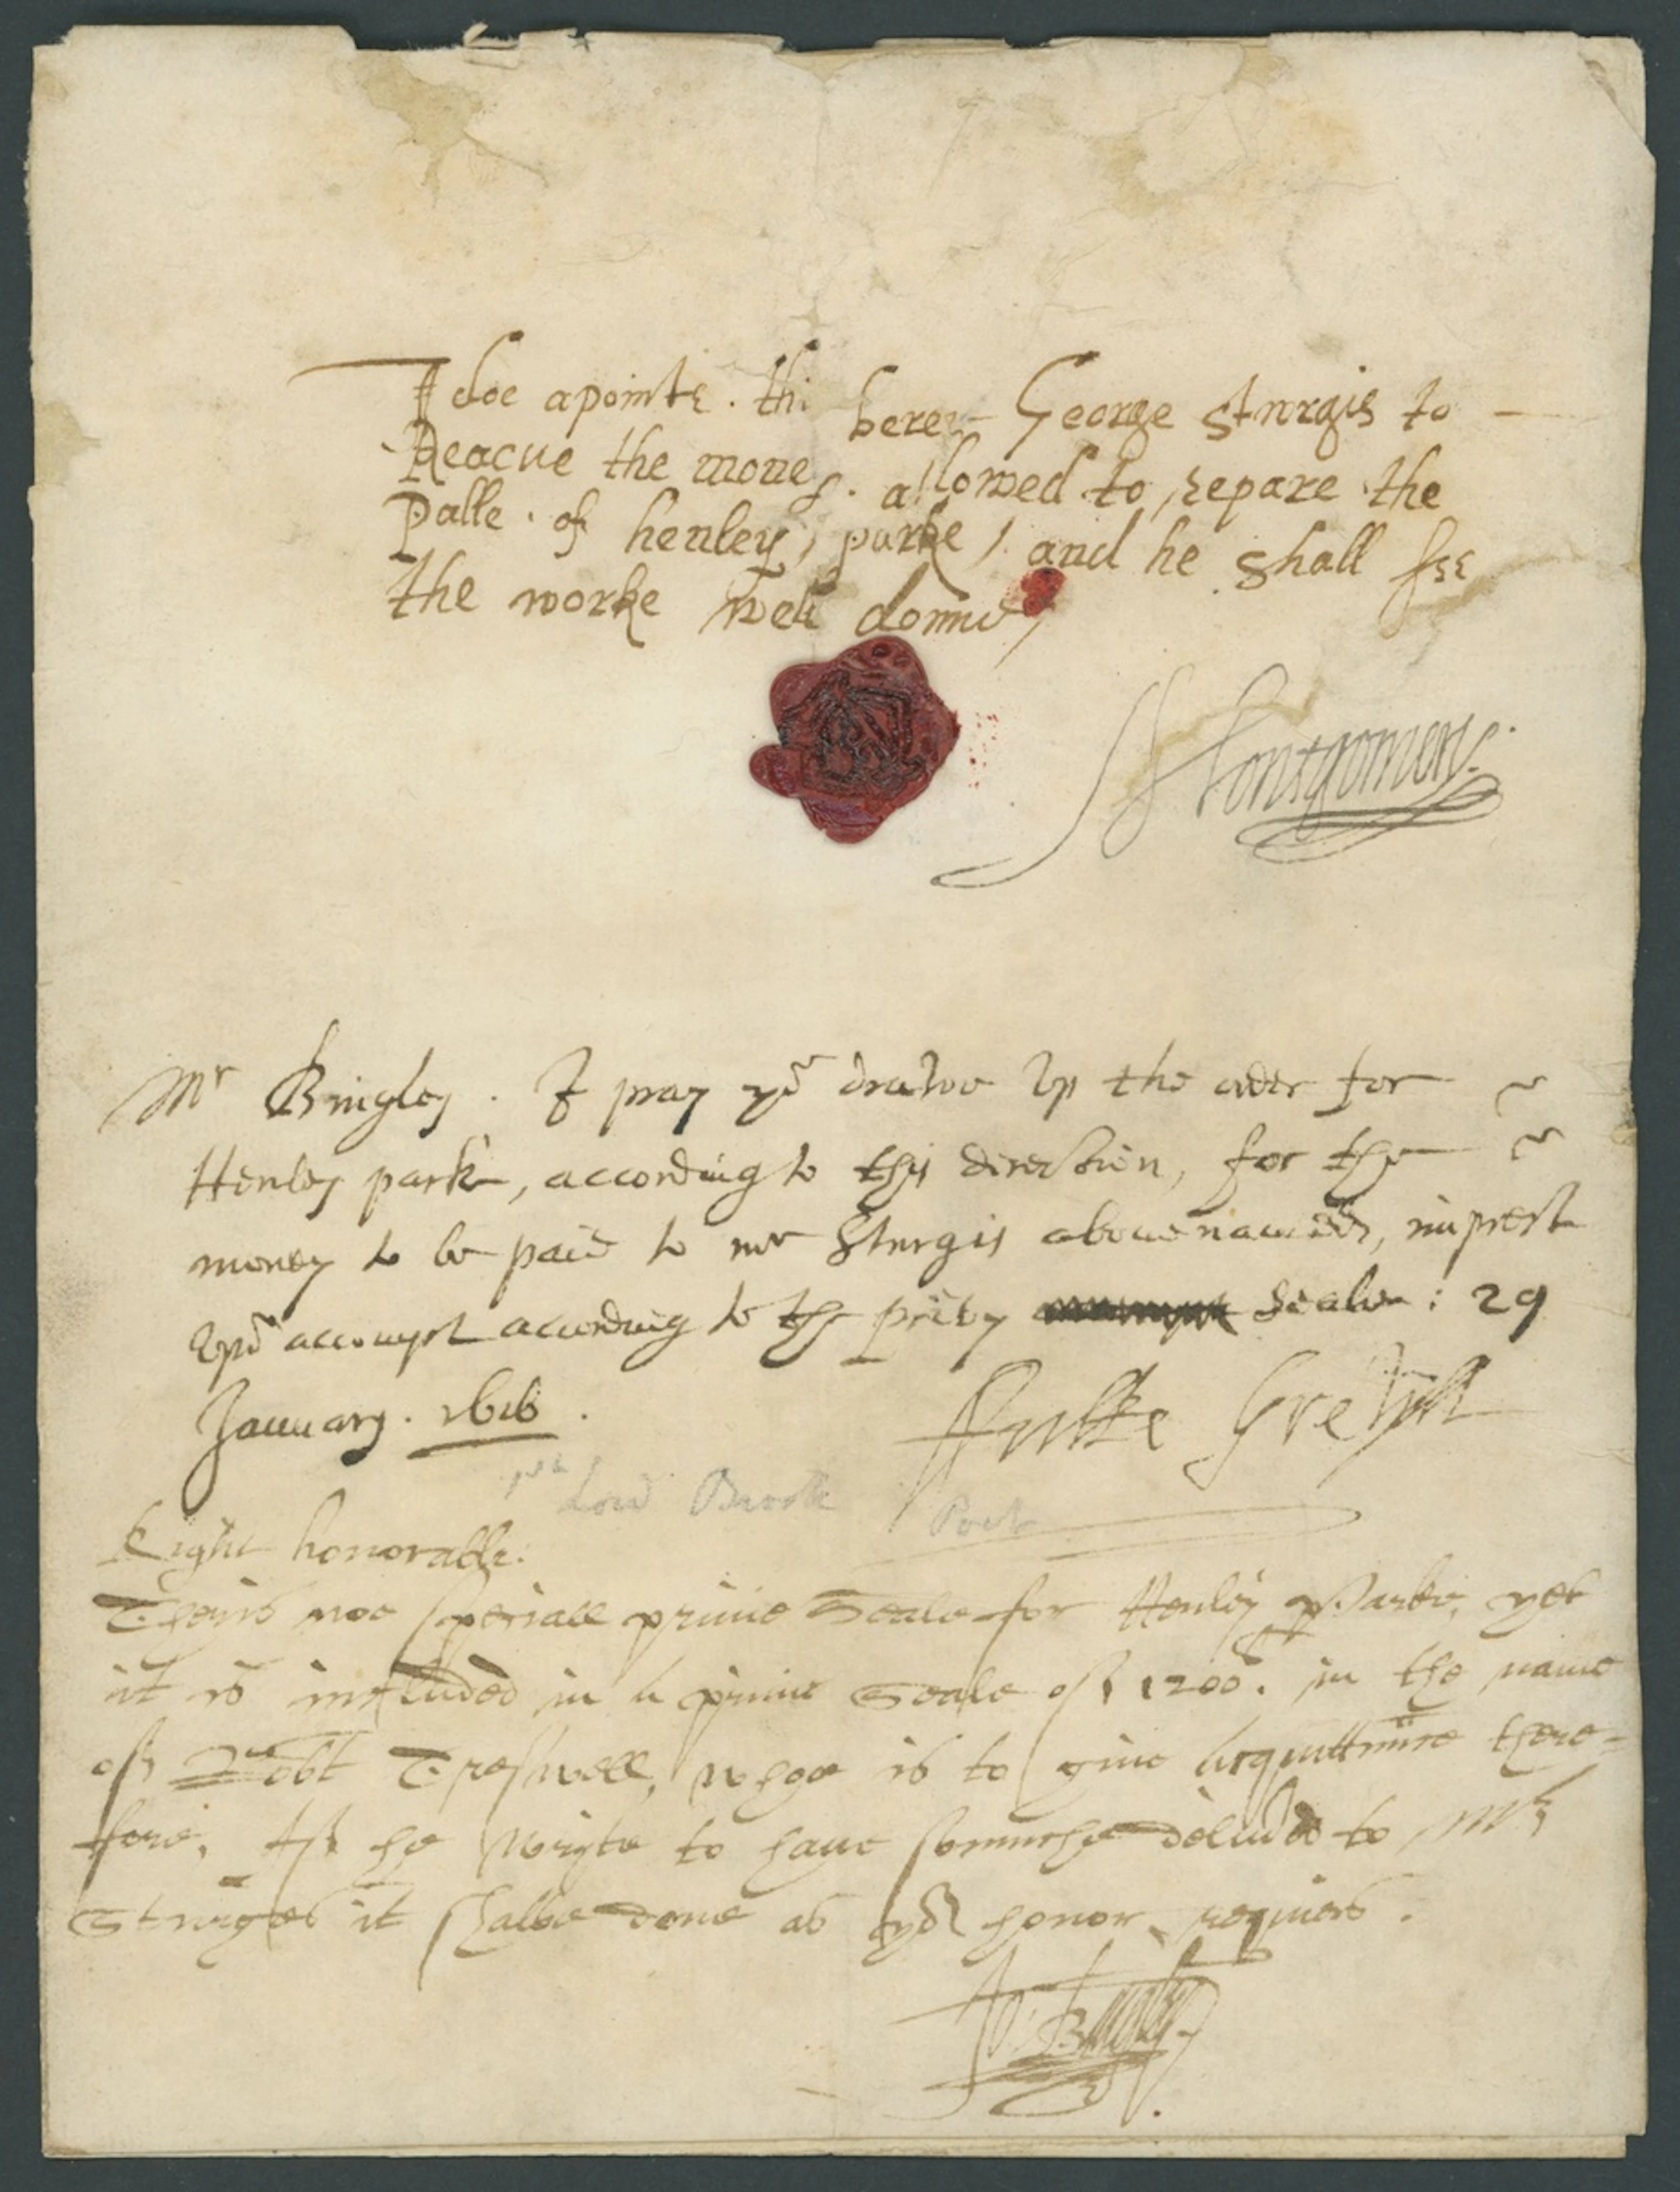 I doe apointe . the berer George Sturgis to
Reaceue the money . allowed to repare the
Palle . of henley, parke, and he shall see
the worke well donne,
Montgomery.
Mr Bingley . I pray yu drawe vp the order for
Henley park, according to this direction, for the
money to be paid to mr Sturgis abouenamed, imprest
vpõ accompt according to the privy seale : 29
January . 1616 .
Fulke Grevyll
Lord Brooke Poet
Right honorable:
Theris noe speciall privie Seale for Henley Parke, yet
it is included in a privie Seale of 1200li. in the name
of Robt Treswell, whoe is to give acquittance there=
fore, If he write to have somuche deliũed to Mr
Sturges it shalbe done as yor honor requires .
Jo: Bingley.